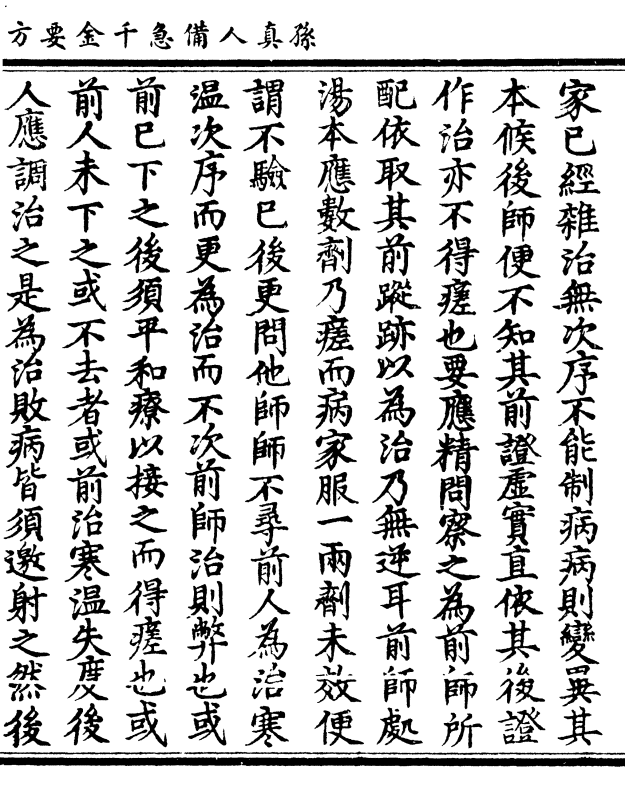 孫真人備急千金要方
家已經雜治無次序不能制病病則變異其
本候後師便不知其前證虛實直依其後證
作治亦不得瘥也要應精問察之為前師所
配依取其前蹤跡以為治乃無逆耳前師處
湯本應數劑乃瘥而病家服一兩劑未效便
謂不驗已後更問他師師不尋前人為治寒
溫次序而更為治而不次前師治則弊也或
前已下之後須平和療以接之而得瘥也或
前人未下之或不去者或前治寒溫失度後
人應調治之是為治敗病皆須邀射之然後